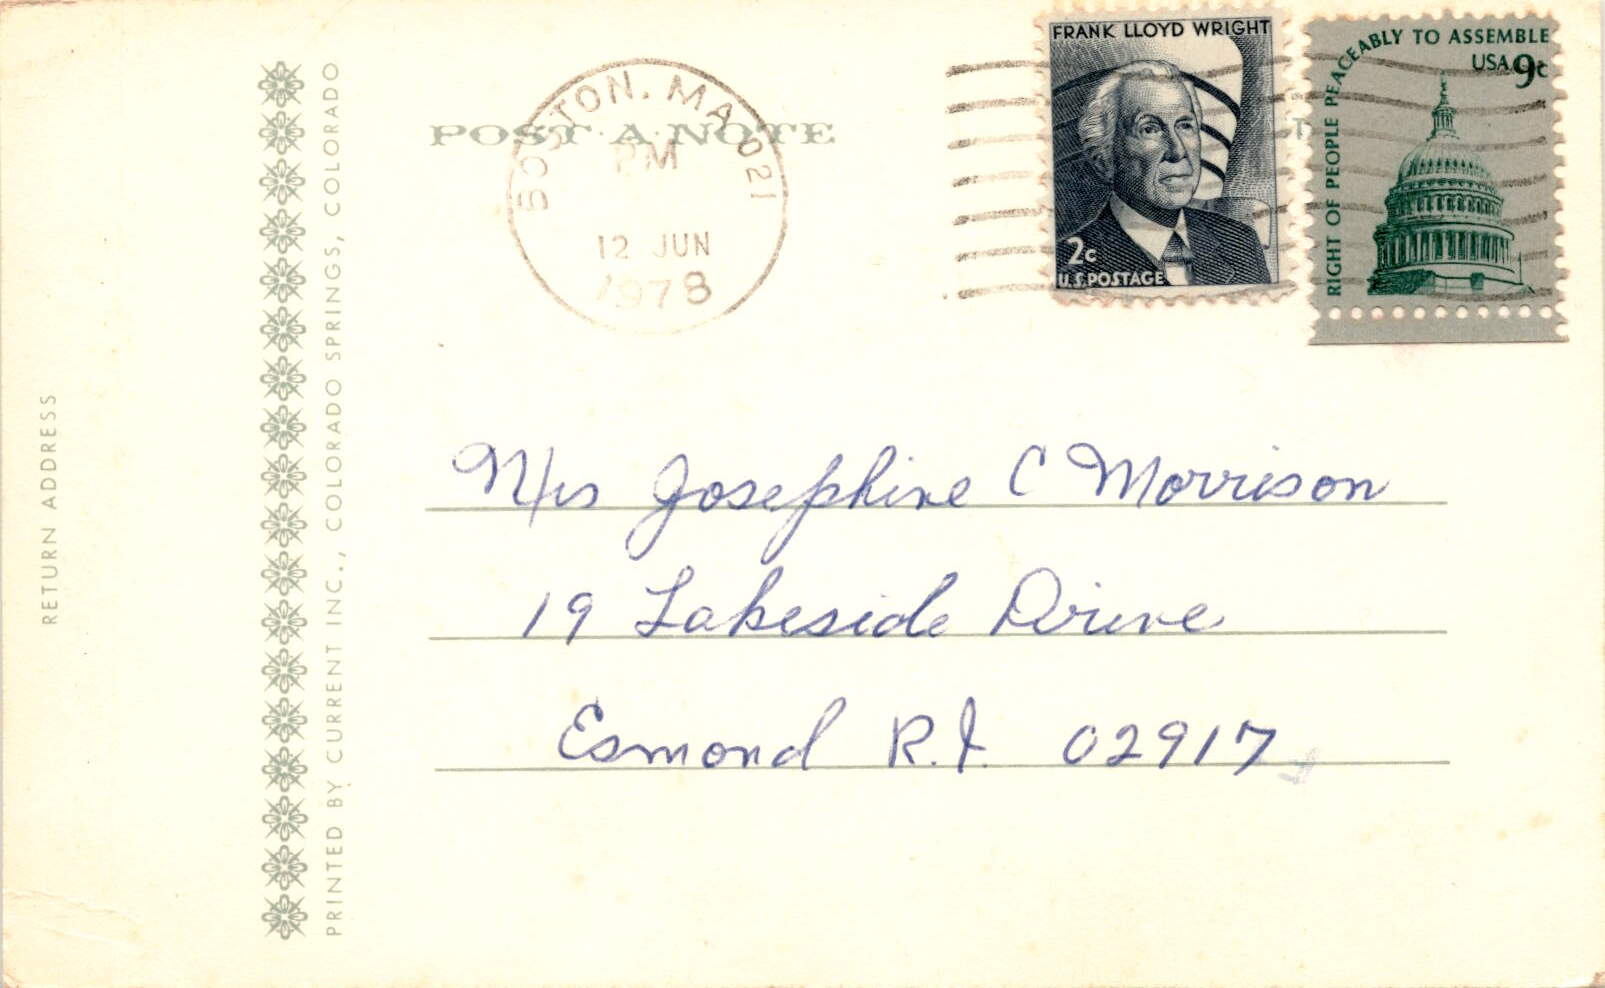 FRANK LLOYD WRIGHT
2c
U.S. POSTAGE
RIGHT OF PEOPLE PEACEABLY TO ASSEMBLE
USA 9c
BOSTON, MA 021
PM
12 JUN
1978
POST·A·NOTE
RETURN ADDRESS
PRINTED BY CURRENT INC., COLORADO SPRINGS, COLORADO
Mrs Josephine C Morrison
19 Lakeside Drive
Esmond R.I. 02917